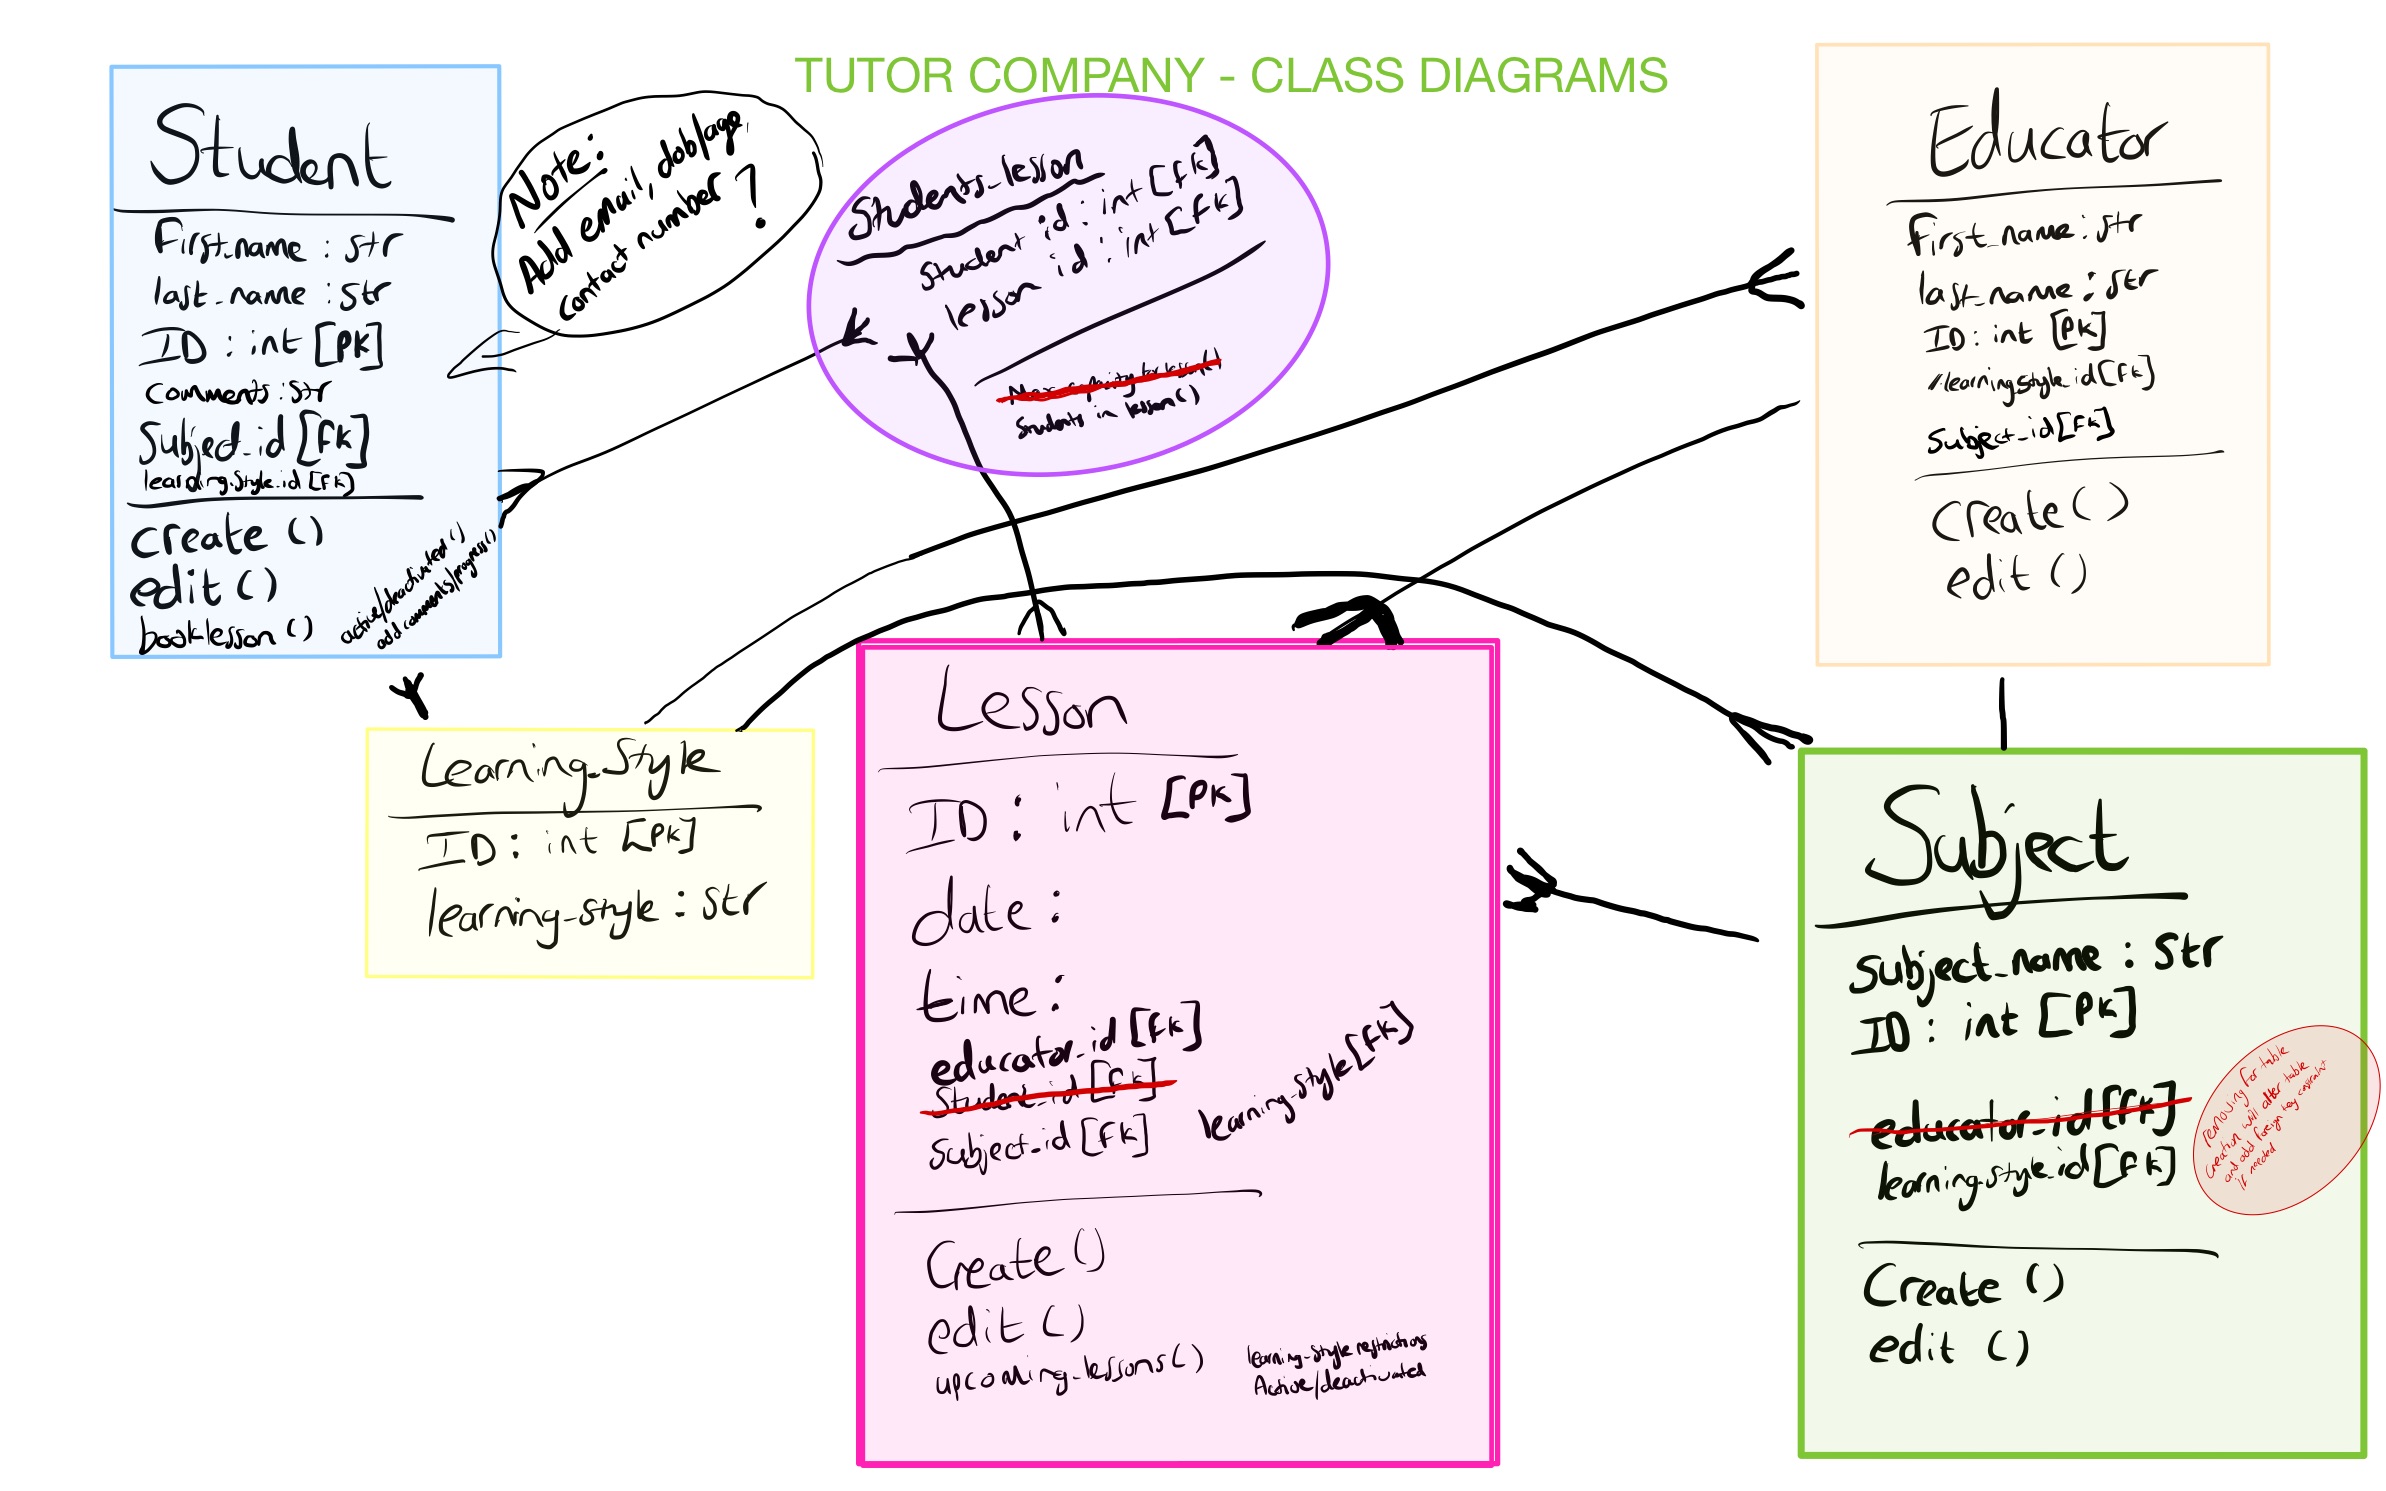 TUTOR COMPANY - CLASS DIAGRAMS
Student
First_name : str
last_name : str
ID : int [PK]
comments : str
Subject_id [FK]
learning.style.id [FK]
create ()
edit ()
book lesson ()
active/deactivated ()
add comments/progress()
Note:
Add email, dob/age,
contact number ?
Students_lesson
Student id : int [FK]
lesson id : int [FK]
Max capacity for lesson()
Students in lesson()
Educator
first_name : str
last_name : str
ID : int [PK]
learningstyle_id [FK]
Subject_id [FK]
Create ()
edit ()
Learning_Style
ID : int [PK]
learning_style : str
Lesson
ID : int [PK]
date :
time :
educator_id [FK]
Student_id [FK]
subject_id [FK]
learning_style [FK]
Create ()
edit ()
upcoming_lessons ()
learning_style restrictions
Active/deactivated
Subject
Subject_name : Str
ID : int [PK]
educator_id [FK]
learning.style.id [FK]
Create ()
edit ()
removing for table
creation will alter table
and add foreign key constraint
if needed